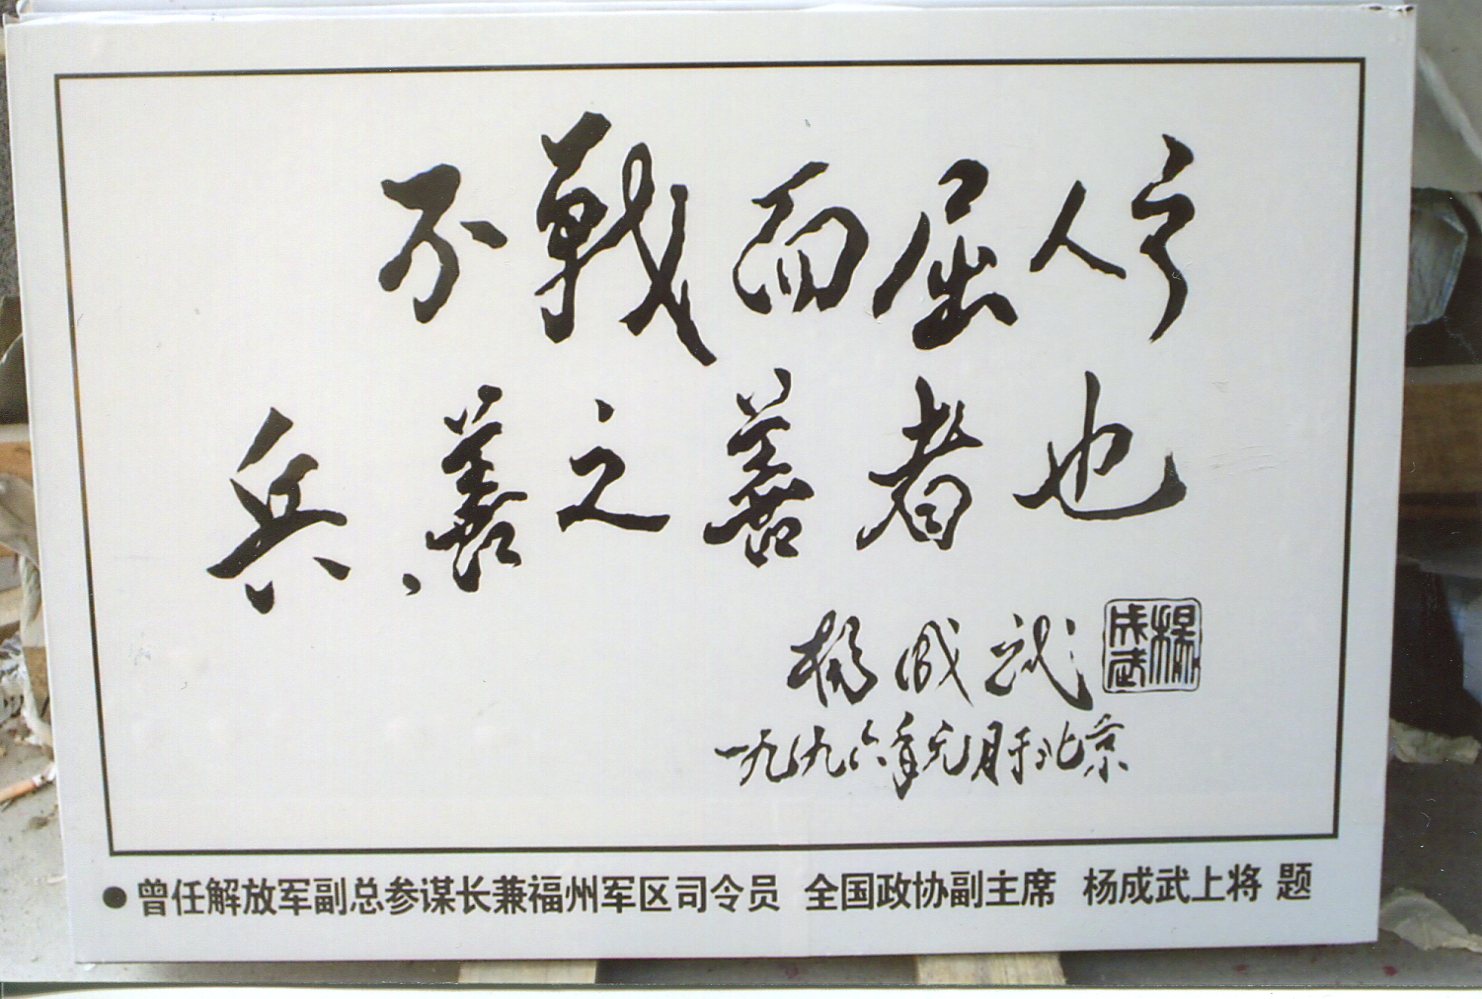 不戰而屈人之
兵善之善者也
杨成武
楊成武
一九九六年元月于北京
●曾任解放军副总参谋长兼福州军区司令员 全国政协副主席 杨成武上将 题